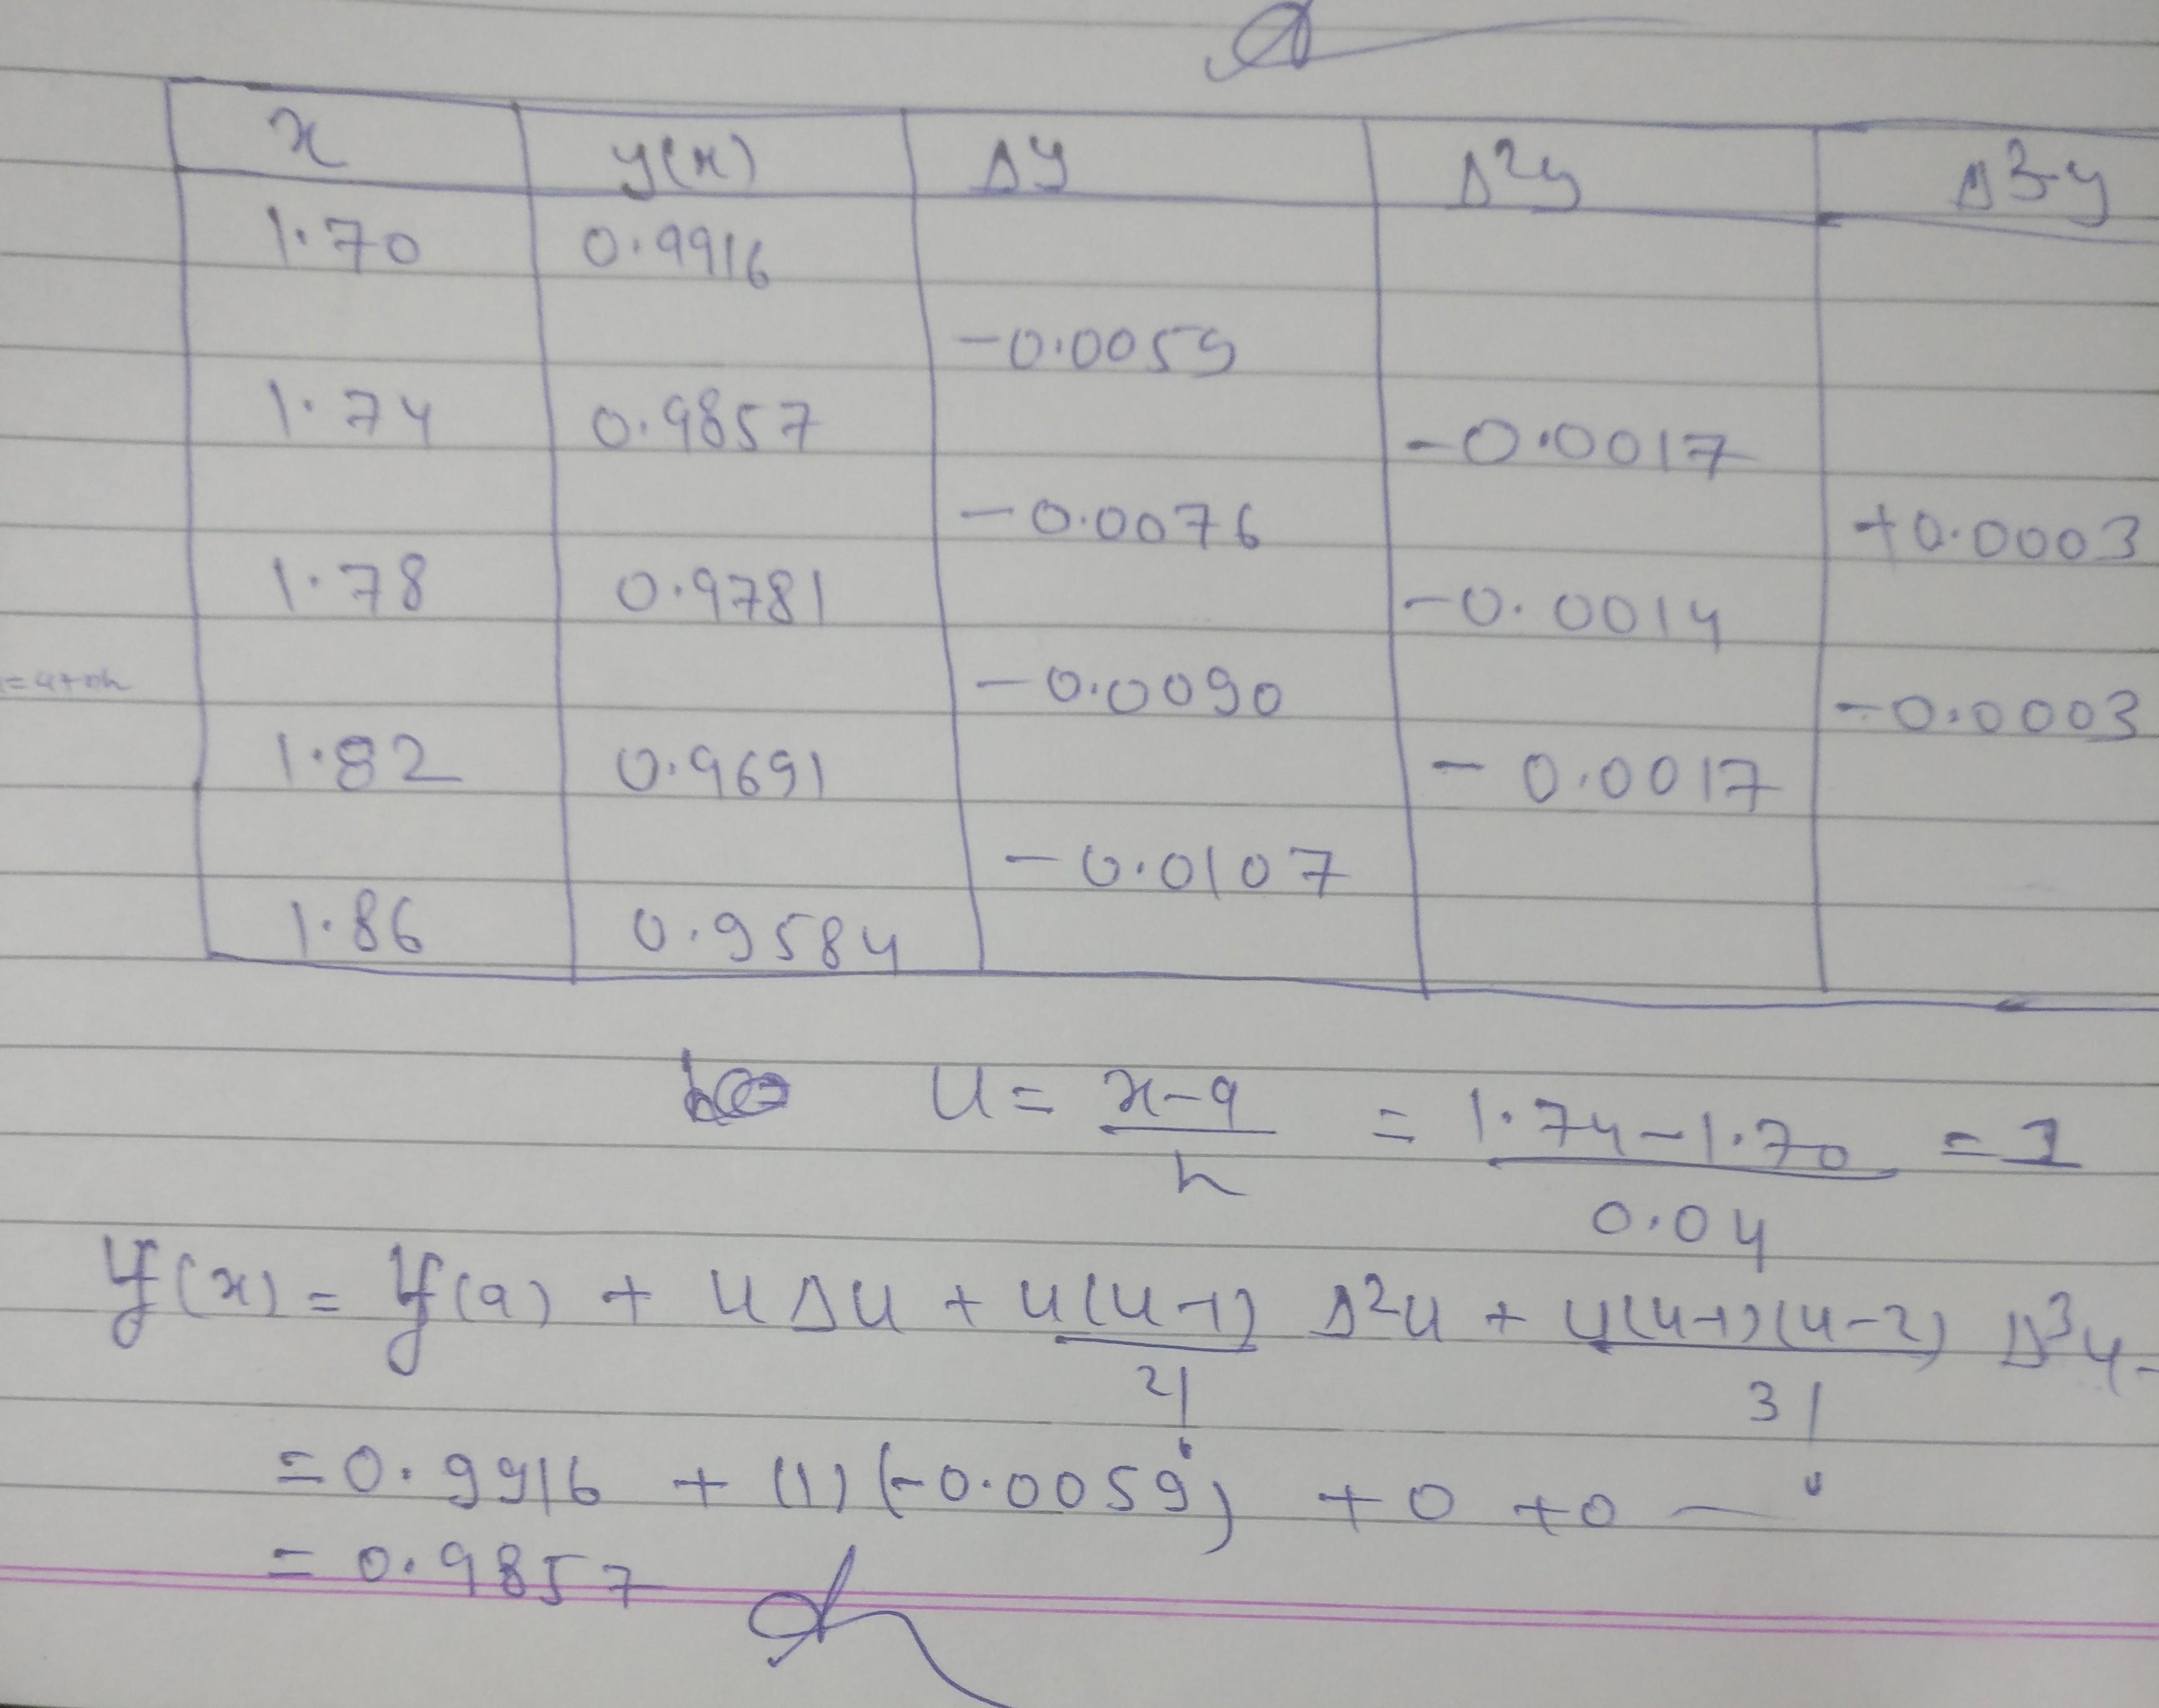 x y(x) Δy Δ²y Δ³y
1.70 0.9916
-0.0059
1.74 0.9857 -0.0017
-0.0076 +0.0003
1.78 0.9781 -0.0014
= a+nh -0.0090 -0.0003
1.82 0.9691 -0.0017
-0.0107
1.86 0.9584
u = x-a / h = 1.74-1.70 / 0.04 = 1
y(x) = y(a) + u Δu + u(u-1) / 2! Δ²u + u(u-1)(u-2) / 3! Δ³u -
= 0.9916 + (1) (-0.0059) + 0 + 0 —
= 0.9857